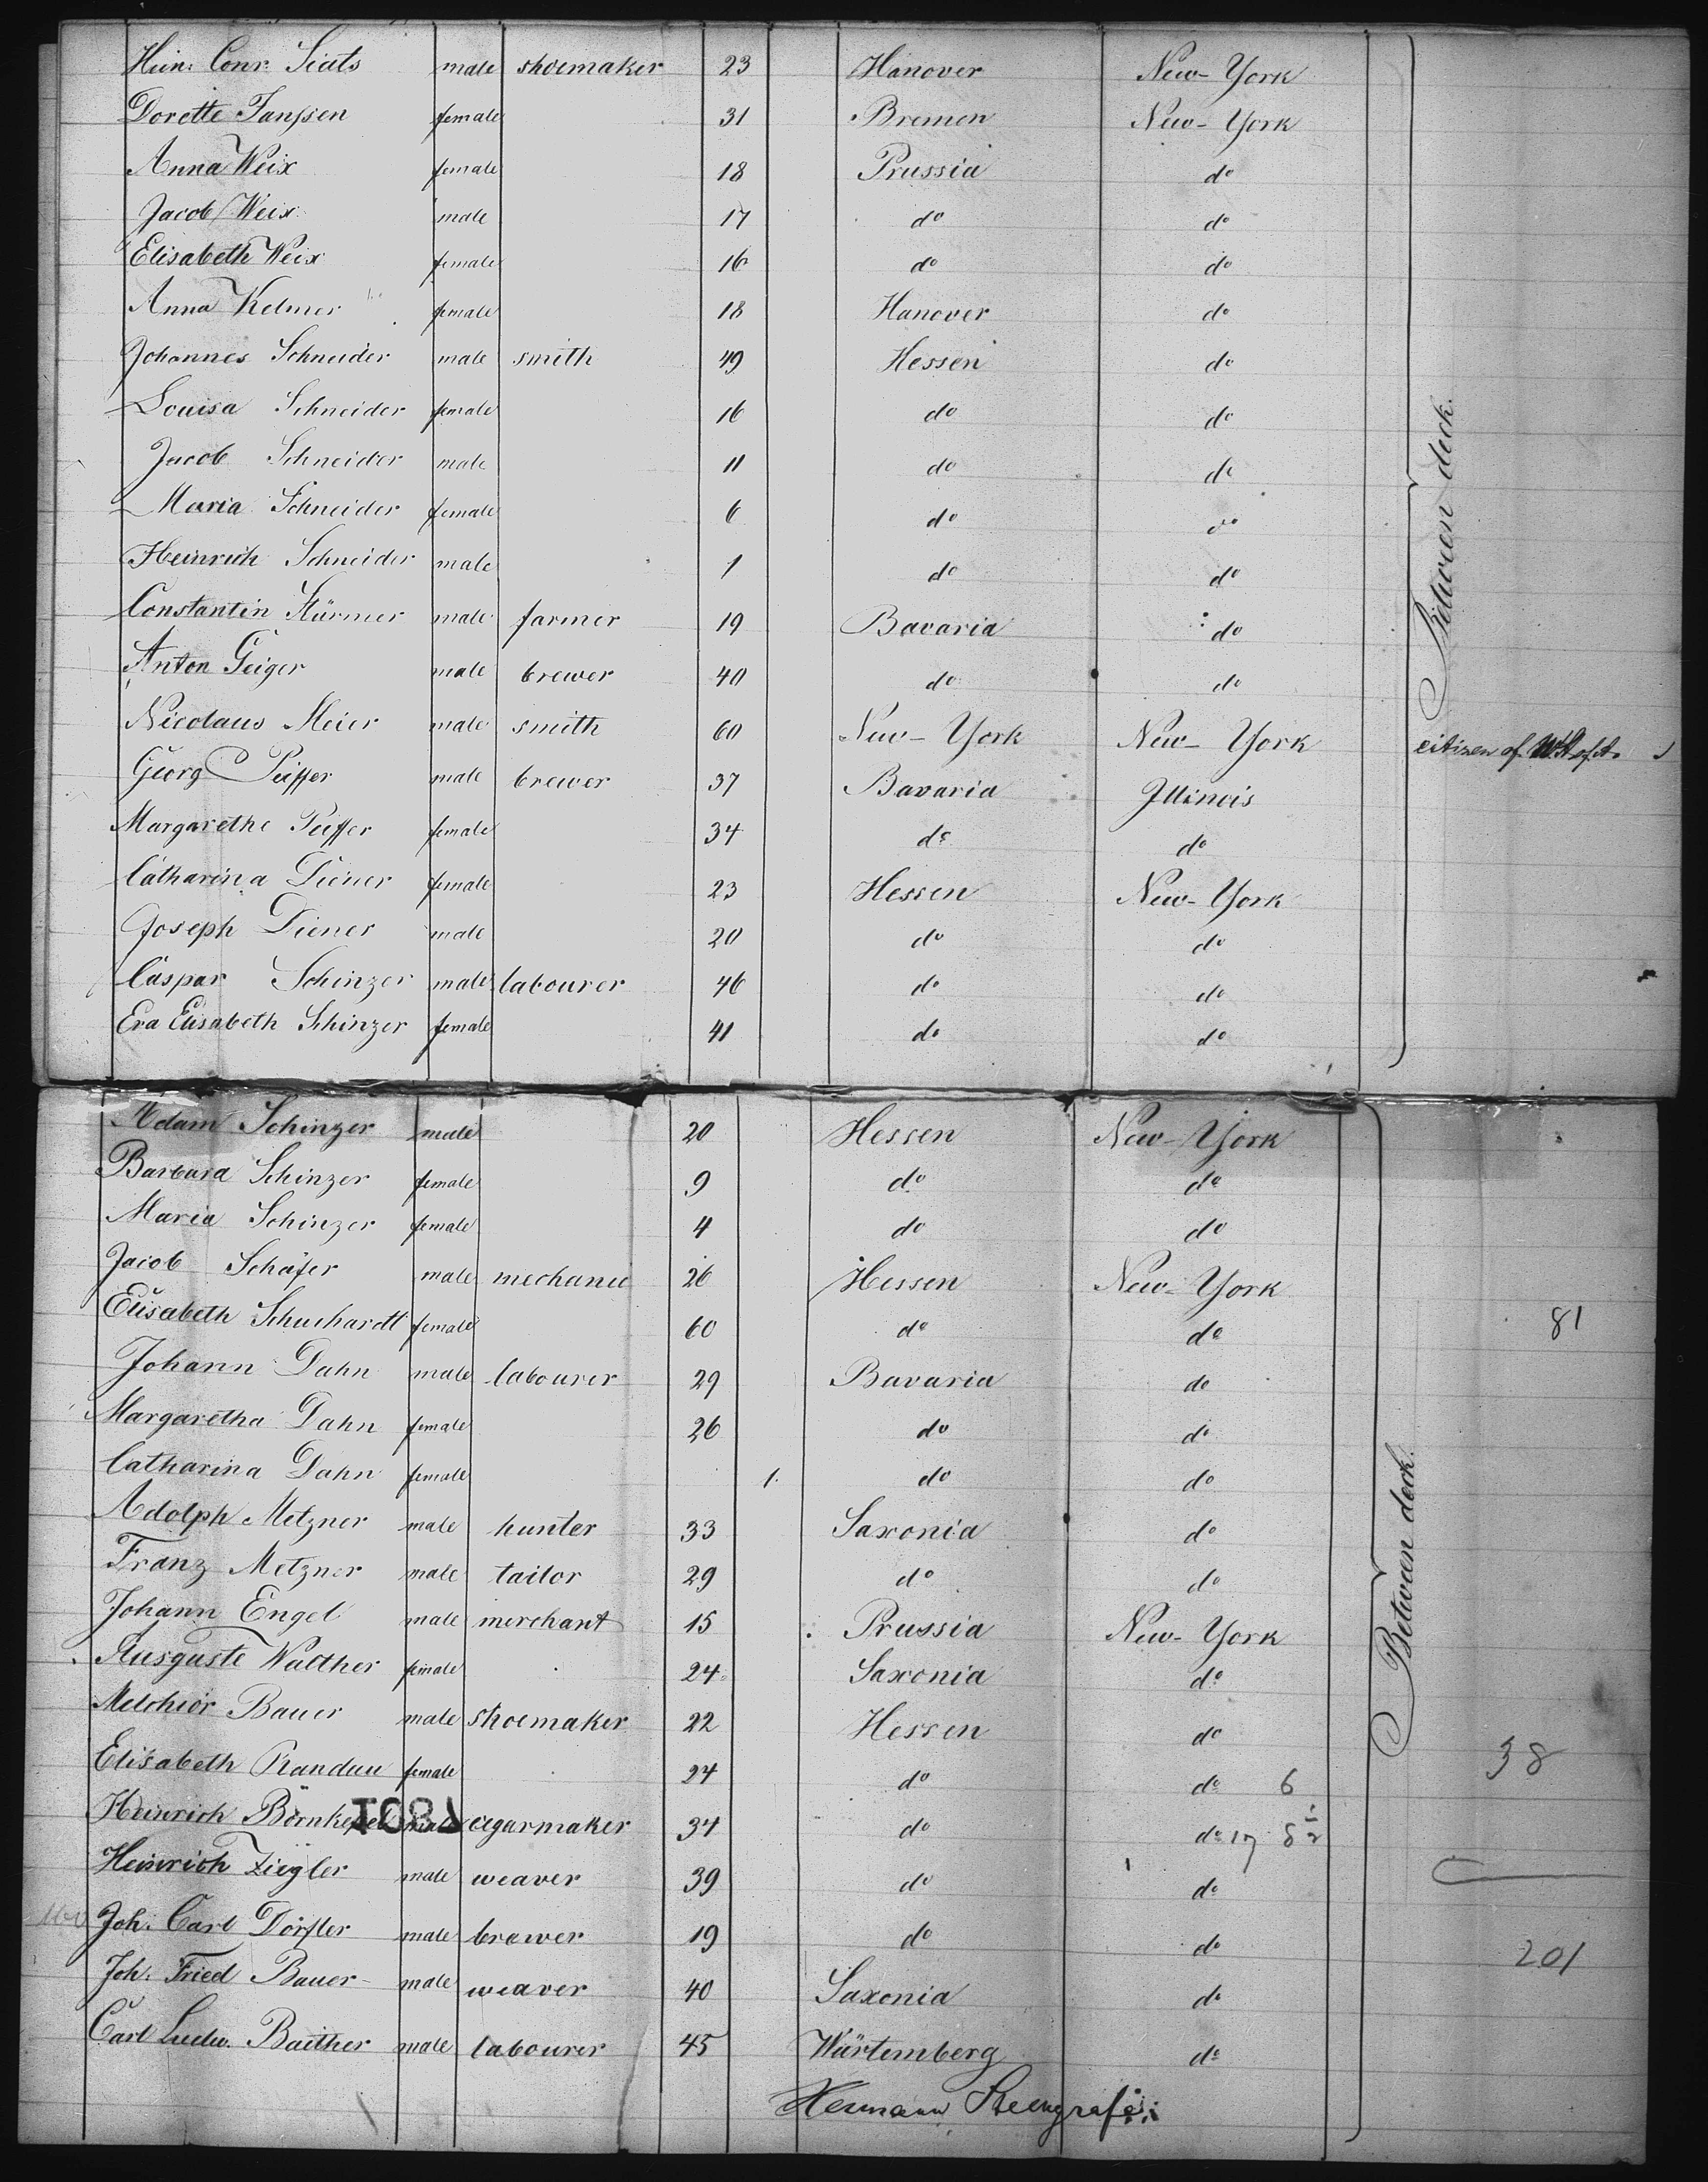 Hein: Conr. Seats male shoemaker 23 Hanover New-York
Dorette Janssen female 31 Bremen New-York
Anna Weix female 18 Prussia do
Jacob Weix male 17 do do
Elisabeth Weix female 16 do do
Anna Kelmer female 18 Hanover do
Johannes Schneider male smith 49 Hessen do
Louisa Schneider female 16 do do
Jacob Schneider male 11 do do
Maria Schneider female 6 do do
Heinrich Schneider male 1 do do
Constantin Stürmer male farmer 19 Bavaria do
Anton Geiger male brewer 40 do do
Between deck.
Nicolaus Meier male smith 60 New-York New-York citizen of U.St. of A.
Georg male brewer 37 Bavaria Illinois
Margarethe female 34 do do
Catharina Diener female 23 Hessen New-York
Joseph Diener male 20 do do
Caspar Schinzer male labourer 46 do do
Eva Elisabeth Schinzer female 41 do do
Adam Schinzer male 20 Hessen New-York
Barbara Schinzer female 9 do do
Maria Schinzer female 4 do do
Jacob Schäfer male mechanic 26 Hessen New-York
Elisabeth Schuchardt female 60 do do 81
Johann Dahn male labourer 29 Bavaria do
Margaretha Dahn female 26 do do
Catharina Dahn female 1. do do
Adolph Metzner male hunter 33 Saxonia do
Franz Metzner male tailor 29 do do
Johann Engel male merchant 15 Prussia New-York
Between deck.
Auguste Walther female 24 Saxonia do
Melchior Bauer male shoemaker 22 Hessen do
Elisabeth Randau female 24 do do 6 38
Heinrich male cigarmaker 34 do do 17
Heinrich Ziegler male weaver 39 do do
Joh. Carl Dörfler male brewer 19 do do 201
Joh. Fried Bauer male weaver 40 Saxonia do
Carl Ludw. Baither male labourer 45 Würtemberg do
Hermann Steengrafe